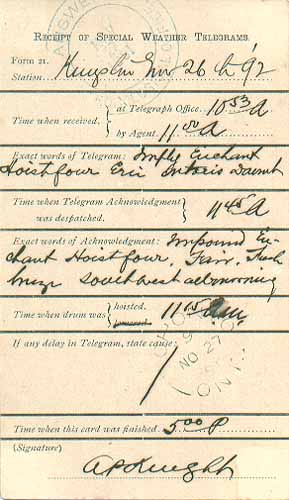 RECEIPT OF SPECIAL WEATHER TELEGRAMS.
FORM 21.
Station, Kingston Nov 26th 92
Time when received, { at Telegraph Office. 10 53 A
by Agent. 11 00 A
Exact words of Telegram: Imply Enchant
Hoist four Erie Ontario
Time when Telegram Acknowledgment
was despatched. } 11 45 A
Exact words of Acknowledgment: Impound En-
chant Hoist four. Fair. Fresh
breeze southwest all morning
Time when drum was { hoisted. 11 15 a.m.
lowered
If any delay in Telegram, state cause:
NO 27
ONT
Time when this card was finished. 5 00 P
(Signature)
A P Knight